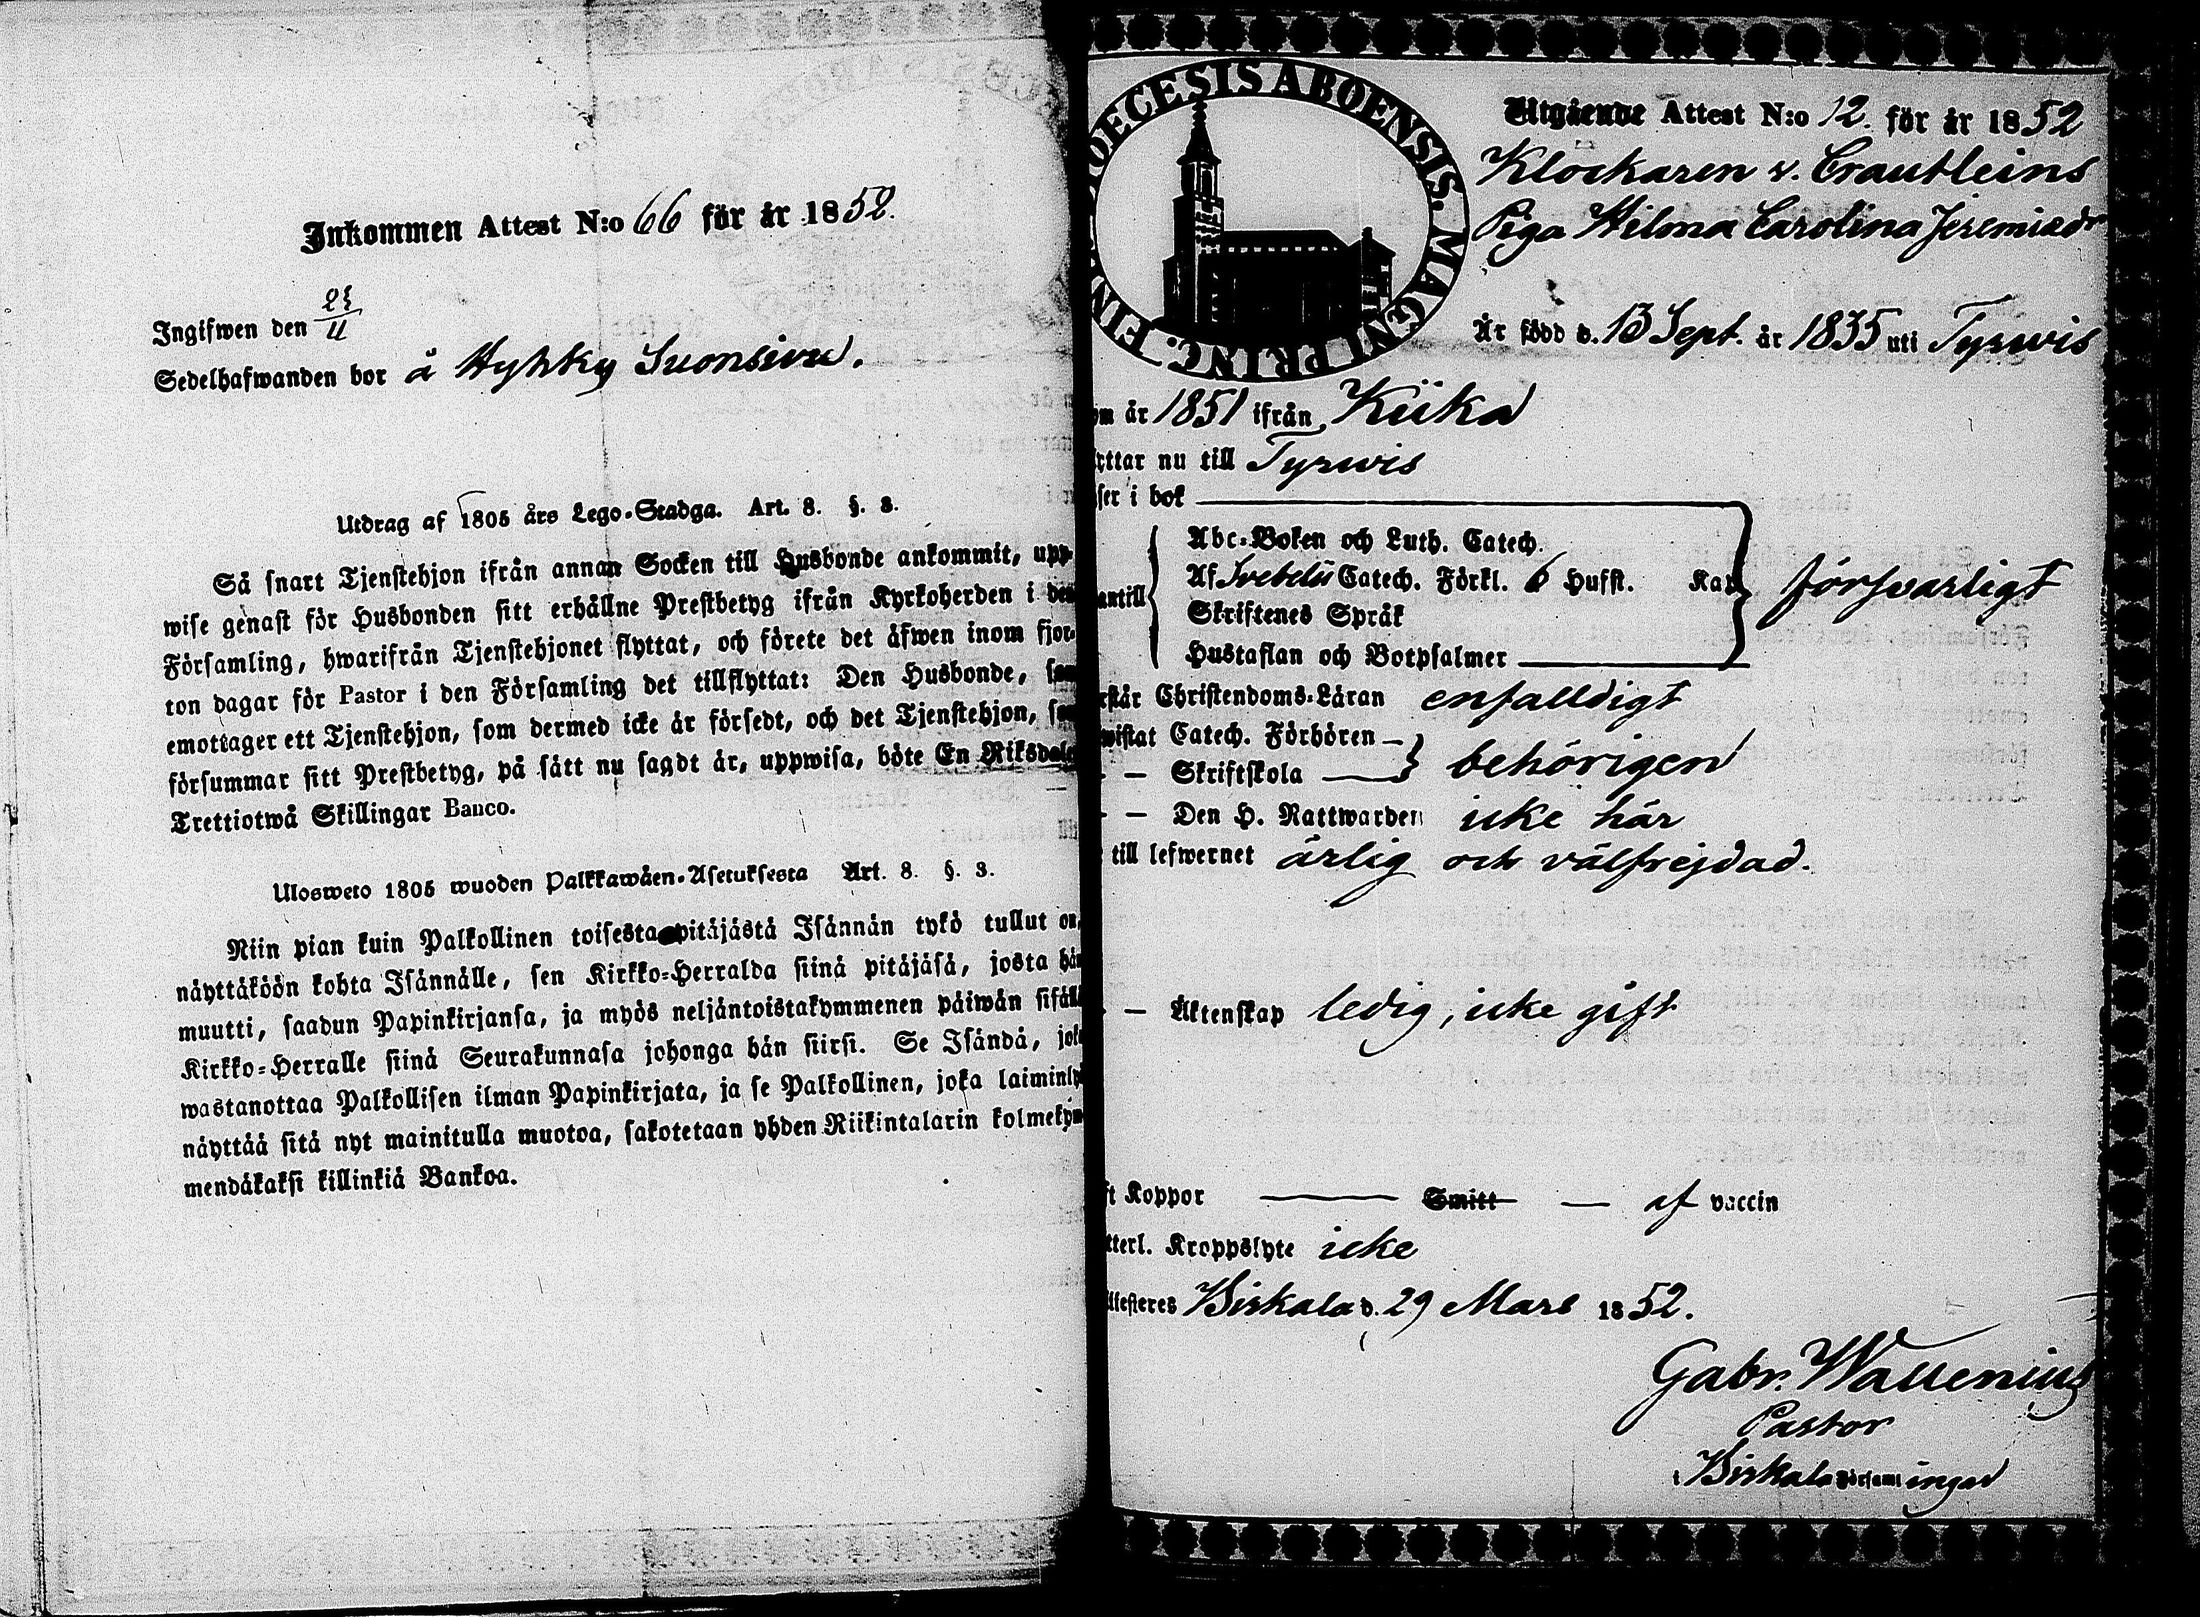 Inkommen Attest N:o 66 för år 1852.
Ingifwen den 23/11
Sedelhafwanden bor å Hyhky Suonsivu.
Utdrag af 1805 års Lego-Stadga. Art. 8. §. 3.
Så snart Tjenstehjon ifrån annan Socken till Husbonde ankommit, upp-
wise genast för Husbonden sitt erhållne Prestbetyg ifrån Kyrkoherden i den
Församling, hwarifrån Tjenstehjonet flyttat, och förete det äfwen inom fjor-
ton dagar för Pastor i den Församling det tillflyttat: Den Husbonde, som
emottager ett Tjenstehjon, som dermed icke är försedt, och det Tjenstehjon, som
försummar sitt Prestbetyg, på sätt nu sagdt är, uppwisa, böte En Riksdaler
Trettiotwå Skillingar Banco.
Ulosweto 1805 wuoden Palkkawäen-Asetuksesta Art. 8. §. 3.
Niin pian kuin Palkollinen toisesta pitäjästä Isännän tykö tullut on,
näyttäköön kohta Isännälle, sen Kirkko-Herralda siinä pitäjäsä, josta hän
muutti, saadun Papinkirjansa, ja myös neljäntoistakymmenen päiwän sisäll
Kirkko-Herralle siinä Seurakunnasa johonga hän siirsi. Se Isändä, joka
wastanottaa Palkollisen ilman Papinkirjata, ja se Palkollinen, joka laiminly
näyttää sitä nyt mainitulla muotoa, sakotetaan yhden Riikintalarin kolmekym-
mendäkaksi killinkiä Bankoa.
DIOECESIS ABOENSIS. MAGNI PRINC. FINL
Utgående Attest N:o 12. för år 1852
Klockaren v. Crautleins
Piga Hilma Carolina Jeremiædr
Är född d. 13 Sept. år 1835 uti Tyrwis
om år 1851 ifrån Kiika
yttar nu till Tyrwis
ser i bok
Abc-Boken och Luth. Catech.
antill Af Svebelii Catech. Förkl. 6 Hufst. Kan försvarligt
Skriftenes Språk
Hustaflan och Botpsalmer
rstår Christendoms-Läran enfalldigt
wistat Catech. Förhören
— Skriftskola behörigen
— Den H. Nattwarden icke här
till lefwernet ärlig och välfrejdad.
— Äktenskap ledig, icke gift
ft Koppor — Smitt — af vaccin
tterl. Kroppslyte icke
ttesteres Birkala d. 29 Mars 1852.
Gabr. Wallenius
Pastor
i Birkala Församl ingar